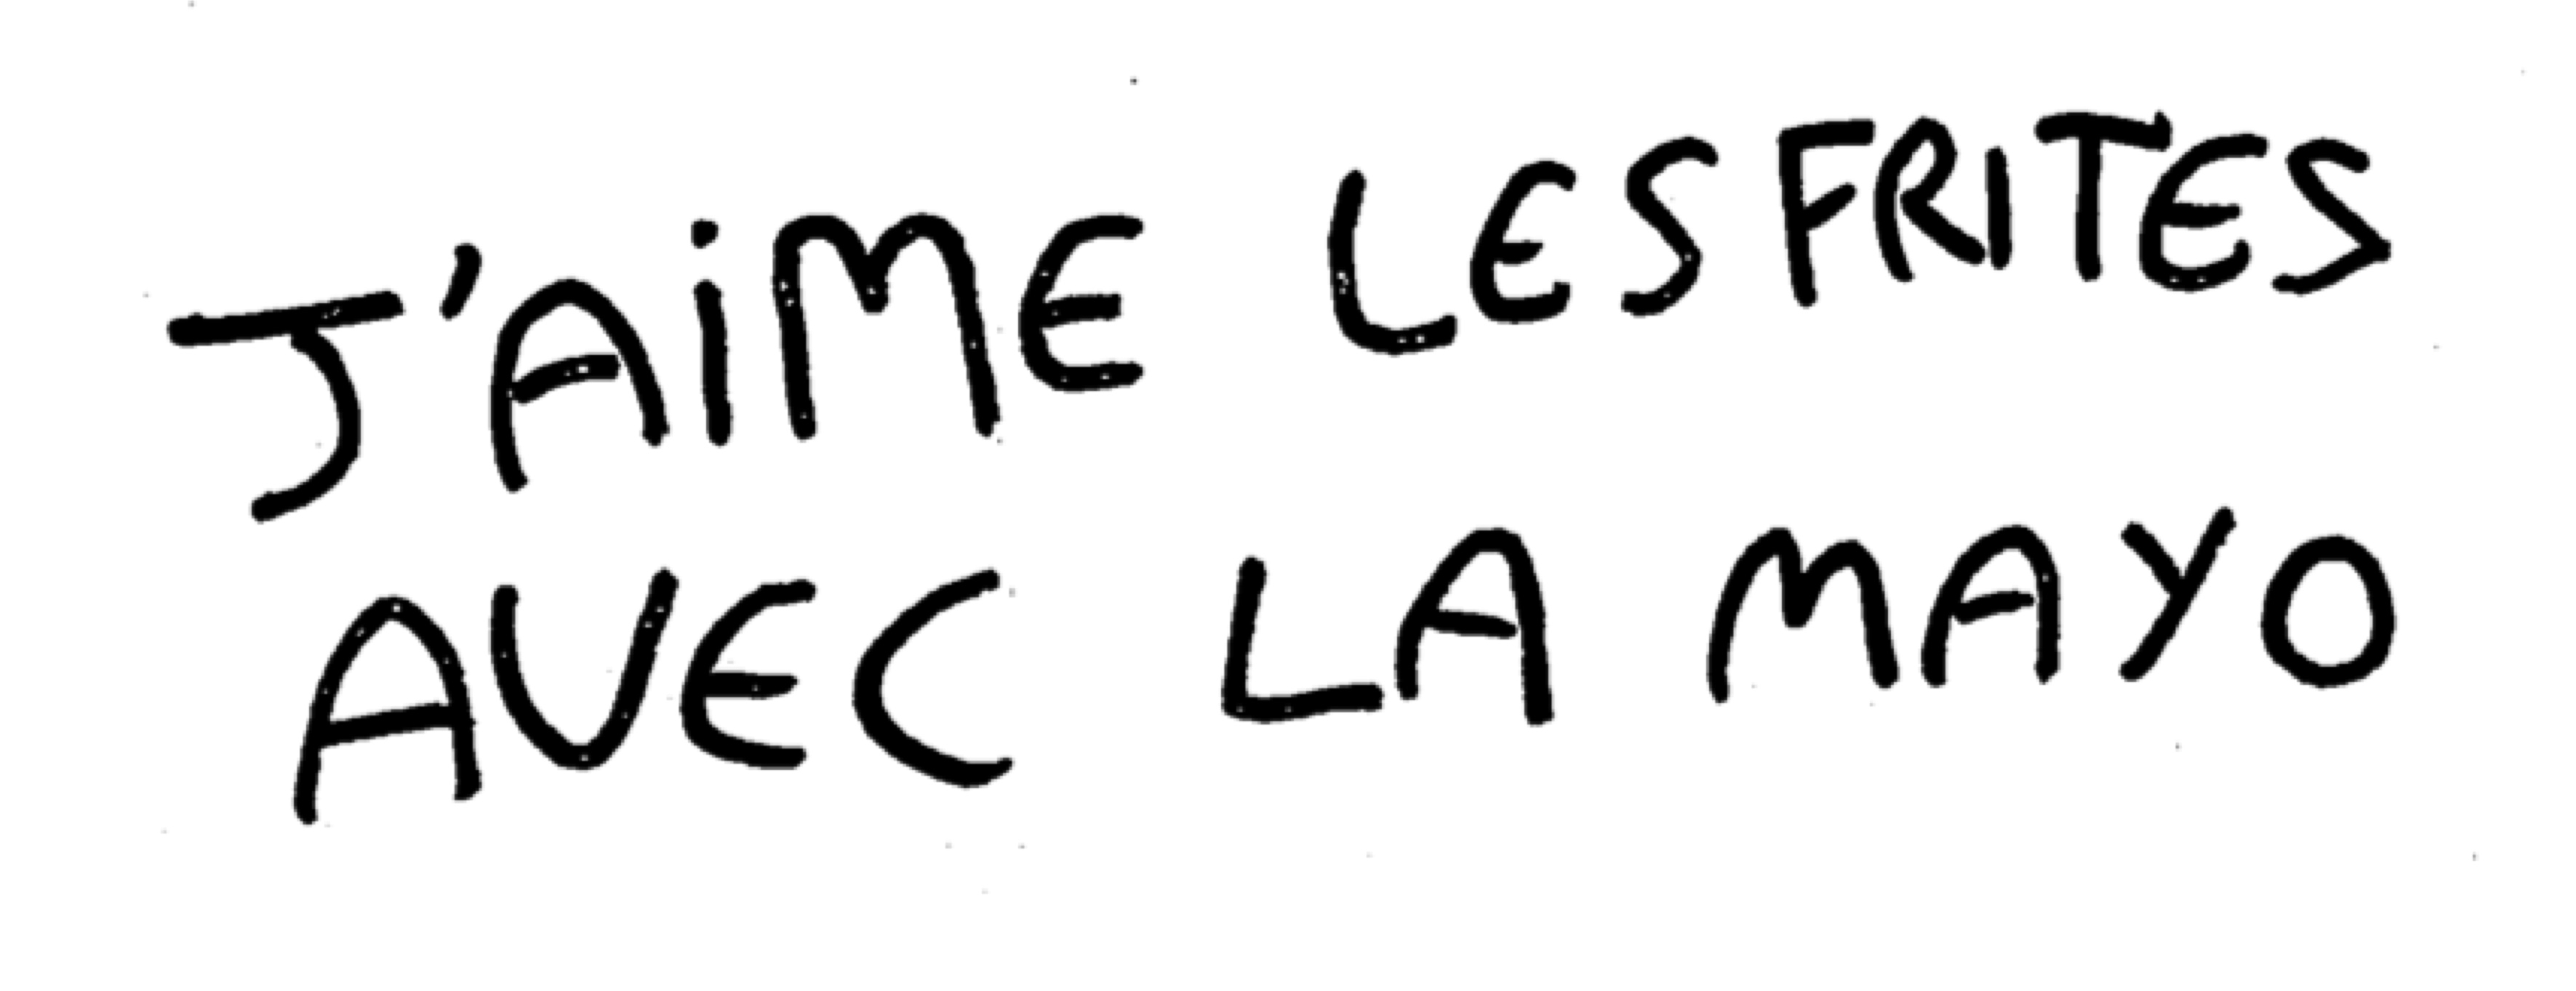 J'AiME LES FRITES
AVEC LA MAYO